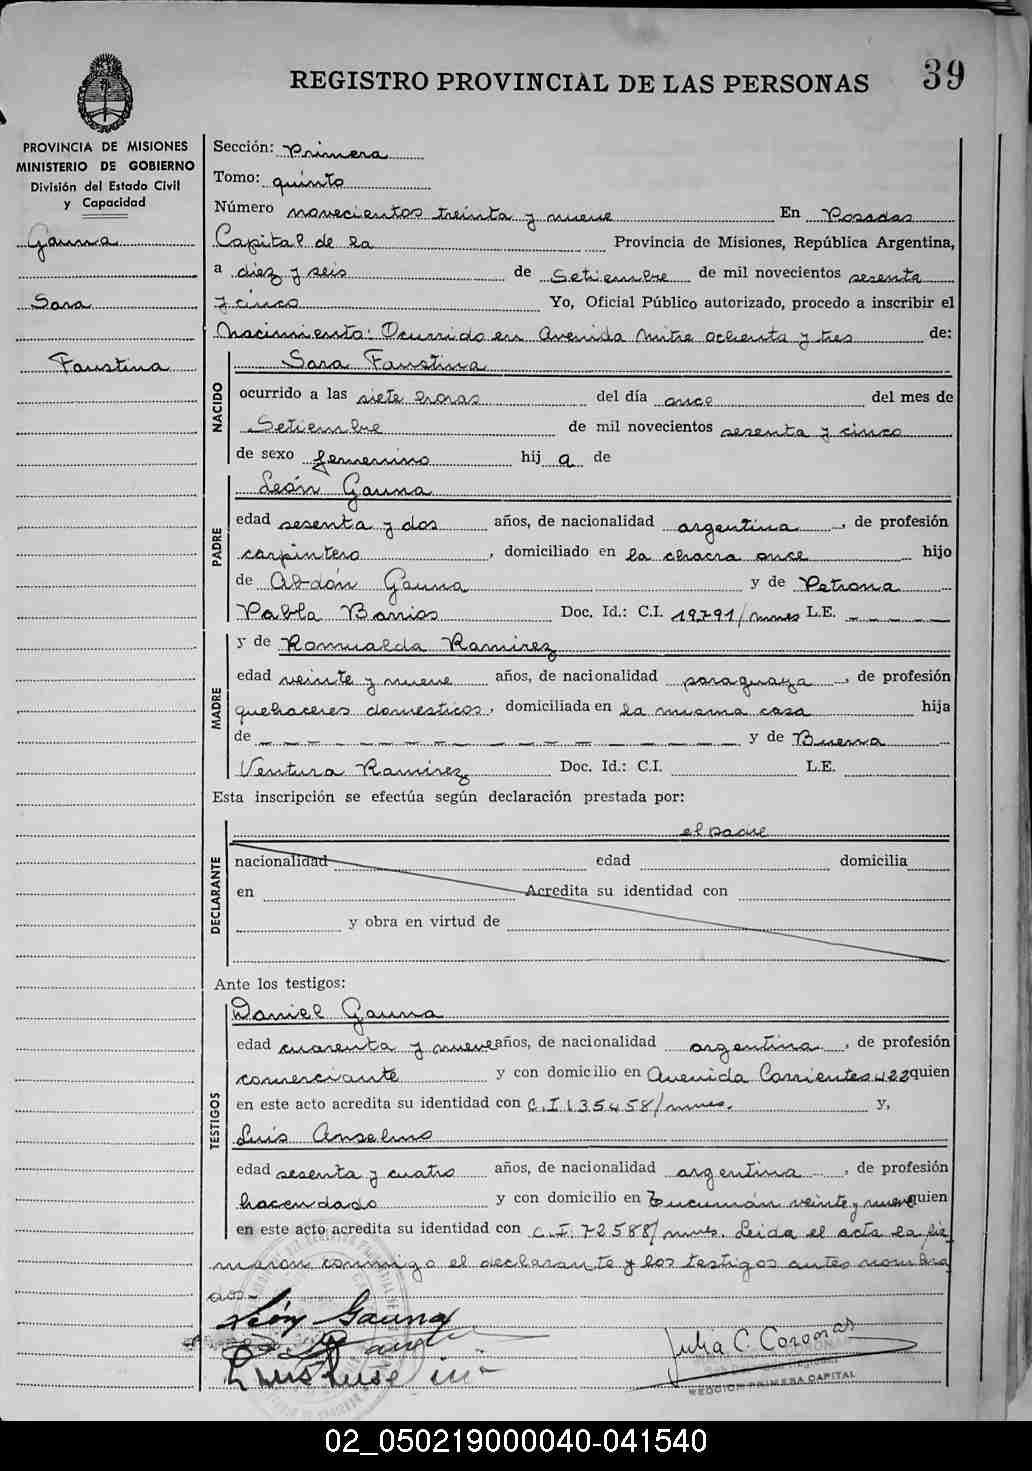 39
REGISTRO PROVINCIAL DE LAS PERSONAS
PROVINCIA DE MISIONES
MINISTERIO DE GOBIERNO
División del Estado Civil
y Capacidad
Gauna
Sara
Faustina
Sección: Primera
Tomo: quinto
Número novecientos treinta y nueve En Posadas
Capital de la Provincia de Misiones, República Argentina,
a diez y seis de Setiembre de mil novecientos sesenta
y cinco Yo, Oficial Público autorizado, procedo a inscribir el
Nacimiento: Ocurrido en Avenida Mitre ochenta y tres de:
NACIDO
Sara Faustina
ocurrido a las siete horas del día once del mes de
Setiembre de mil novecientos sesenta y cinco
de sexo femenino hij a de
PADRE
León Gauna
edad sesenta y dos años, de nacionalidad argentina, de profesión
carpintero, domiciliado en la chacra once hijo
de Abdón Gauna y de Petrona
Pabla Barrios Doc. Id.: C.I. 19791/mnes L.E. – – – – –
MADRE
y de Romualda Ramirez
edad veinte y nueve años, de nacionalidad paraguaya, de profesión
quehaceres domesticos, domiciliada en la misma casa hija
de – – – – – – – – – – y de Buena
Ventura Ramirez Doc. Id.: C.I. L.E.
Esta inscripción se efectúa según declaración prestada por:
DECLARANTE
el padre
nacionalidad edad domicilia
en Acredita su identidad con
y obra en virtud de
Ante los testigos:
TESTIGOS
Daniel Gauna
edad cuarenta y nueve años, de nacionalidad argentina, de profesión
comerciante y con domicilio en Avenida Corrientes 422 quien
en este acto acredita su identidad con C.I 135458/mnes. y,
Luis Anselmo
edad sesenta y cuatro años, de nacionalidad argentina, de profesión
hacendado y con domicilio en Tucumán veinte y nueve quien
en este acto acredita su identidad con C.I. 72588/mnes. Leida el acta la fir
maron conmigo el declarante y los testigos antes nombra
dos.-
León Gauna
Julia C. Coronas
SECCION PRIMERA CAPITAL
02_050219000040-041540